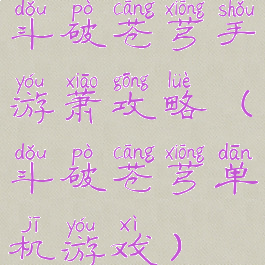 dǒu pò cāng xiōng shǒu
斗破苍芎手
yóu xiāo gōng lüè
游萧攻略（
dǒu pò cāng xiōng dān
斗破苍芎单
jī yóu xì
机游戏）